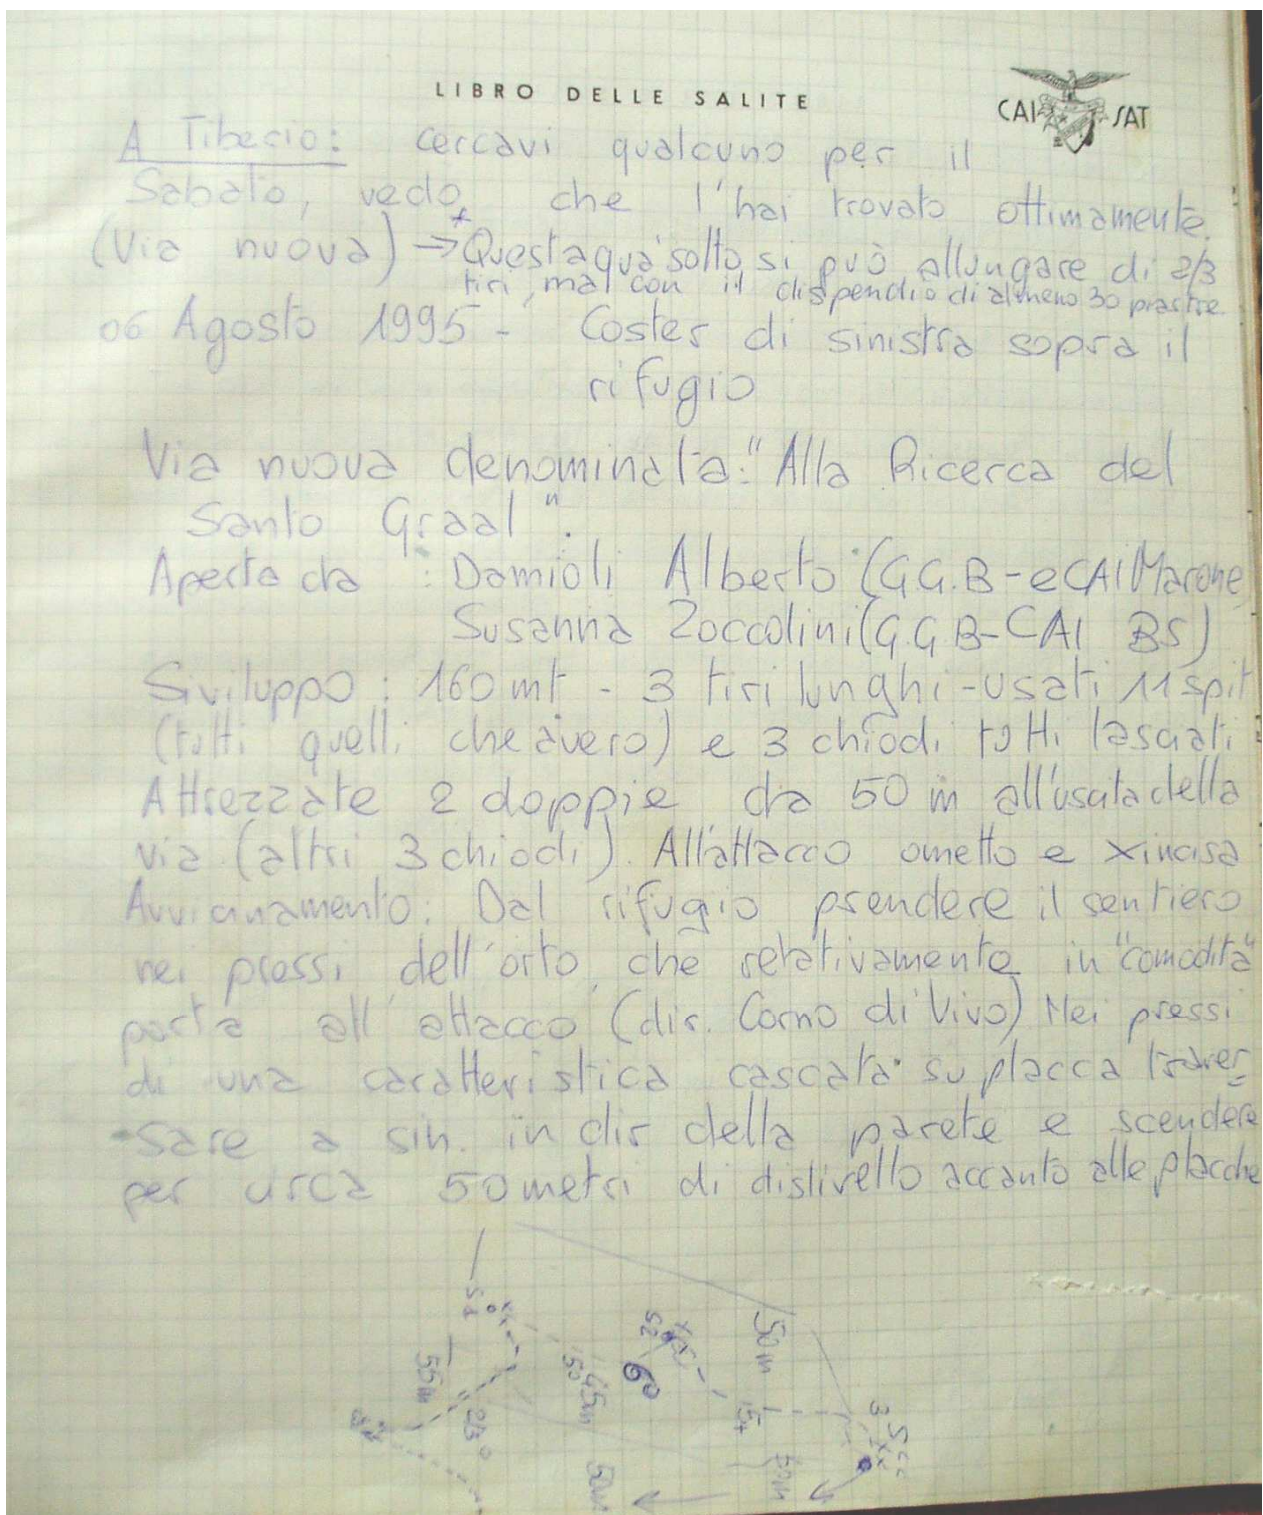 LIBRO DELLE SALITE
CAI SAT
A Tiberio: cercavi qualcuno per il
Sabato, vedo che l'hai trovato ottimamente.
(Via nuova) → Questa qua sotto si può allungare di 2/3
tiri, ma con il dispendio di almeno 30 piastre.
06 Agosto 1995 - Coster di sinistra sopra il
rifugio
Via nuova denominata: "Alla Ricerca del
Santo Graal".
Aperta da : Damioli Alberto (G.G.B - e CAI Marone)
Susanna Zoccolini (G.G.B - CAI BS)
Sviluppo : 160 mt - 3 tiri lunghi - usati 11 spit
(tutti quelli che avevo) e 3 chiodi tutti lasciati
Attrezzate 2 doppie da 50 m all'uscita della
via (altri 3 chiodi). All'attacco ometto e x incisa
Avvicinamento: Dal rifugio prendere il sentiero
nei pressi dell'orto, che relativamente in "comodità"
porta all'attacco (dir. Corno di Vivo) Nei pressi
di una caratteristica cascata su placca traver-
sare a sin. in dir della parete e scendere
per circa 50 metri di dislivello accanto alle placche
S1
55m
2/3°
5°
45m
S2
6°
50m
5+
50m
50m
S3